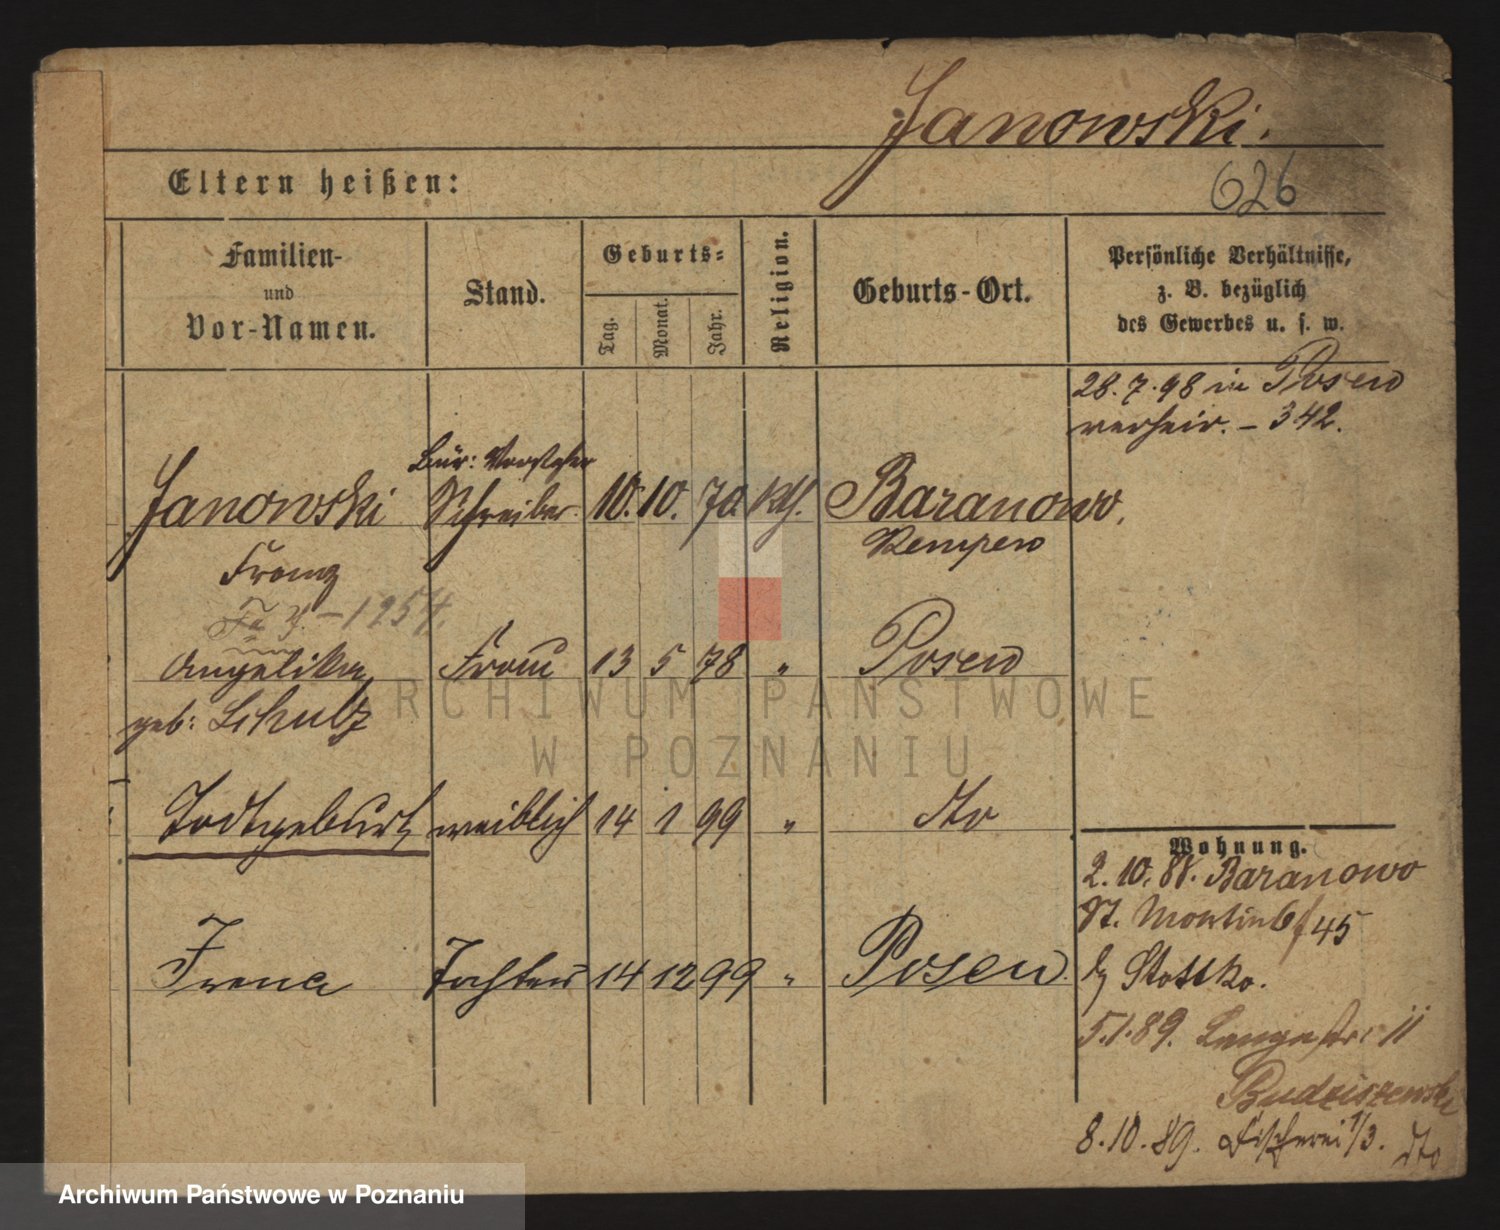 Janowski.
Eltern heißen:
626
Familien-
und
Vor-Namen.
Stand.
Geburts-
Tag.
Monat.
Jahr.
Religion.
Geburts-Ort.
Persönliche Verhältnisse,
z. B. bezüglich
des Gewerbes u. s. w.
28.7.98 in Posen
verheir. – 342.
Bür: Vorsteher
Janowski Schreiber. 10. 10. 70 Kth. Baranowo.
Franz Kempen
– 1254.
Angelika Frau 13 5 78 " Posen
geb: Schulz
Todtgeburt weiblich 14 1 99 " dto
Irena Tochter 14 12 99 " Posen
Wohnung.
2.10.88. Baranowo
St. Martin 6/45
b/ Stottko.
5.1.89. Langestr. 11
Budziszewski
8.10.89. Fischerei 1/3. dto
ARCHIWUM PAŃSTWOWE
W POZNANIU
Archiwum Państwowe w Poznaniu